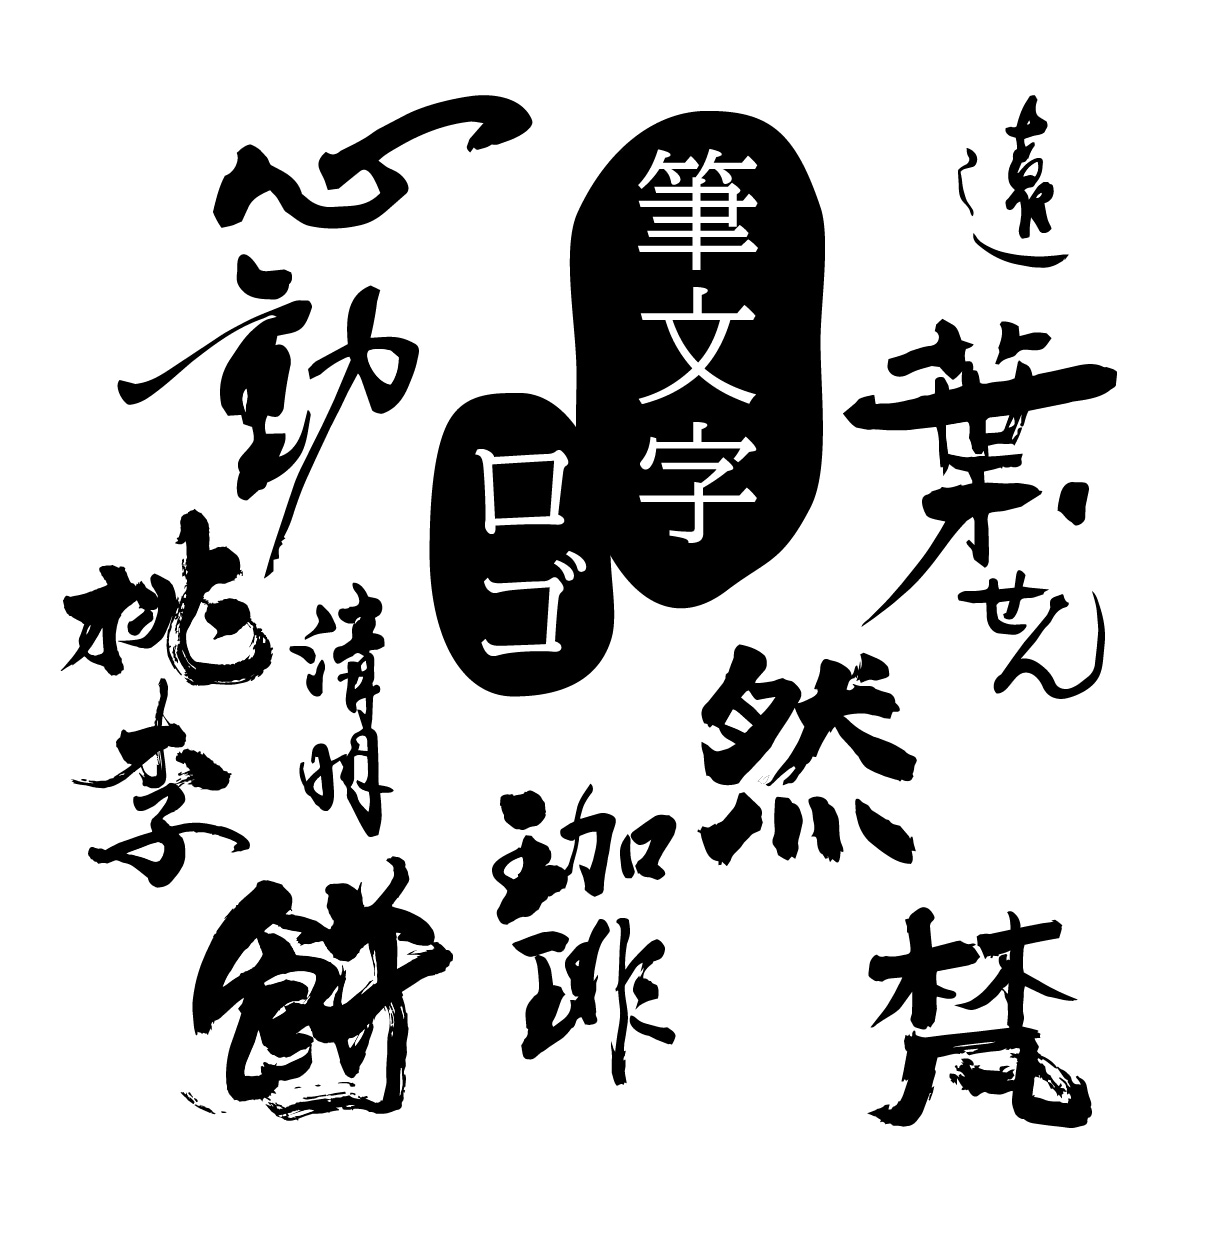 筆文字
ロゴ
遠
葉せん
心動
然
清明
桃李
珈琲
餅
梵